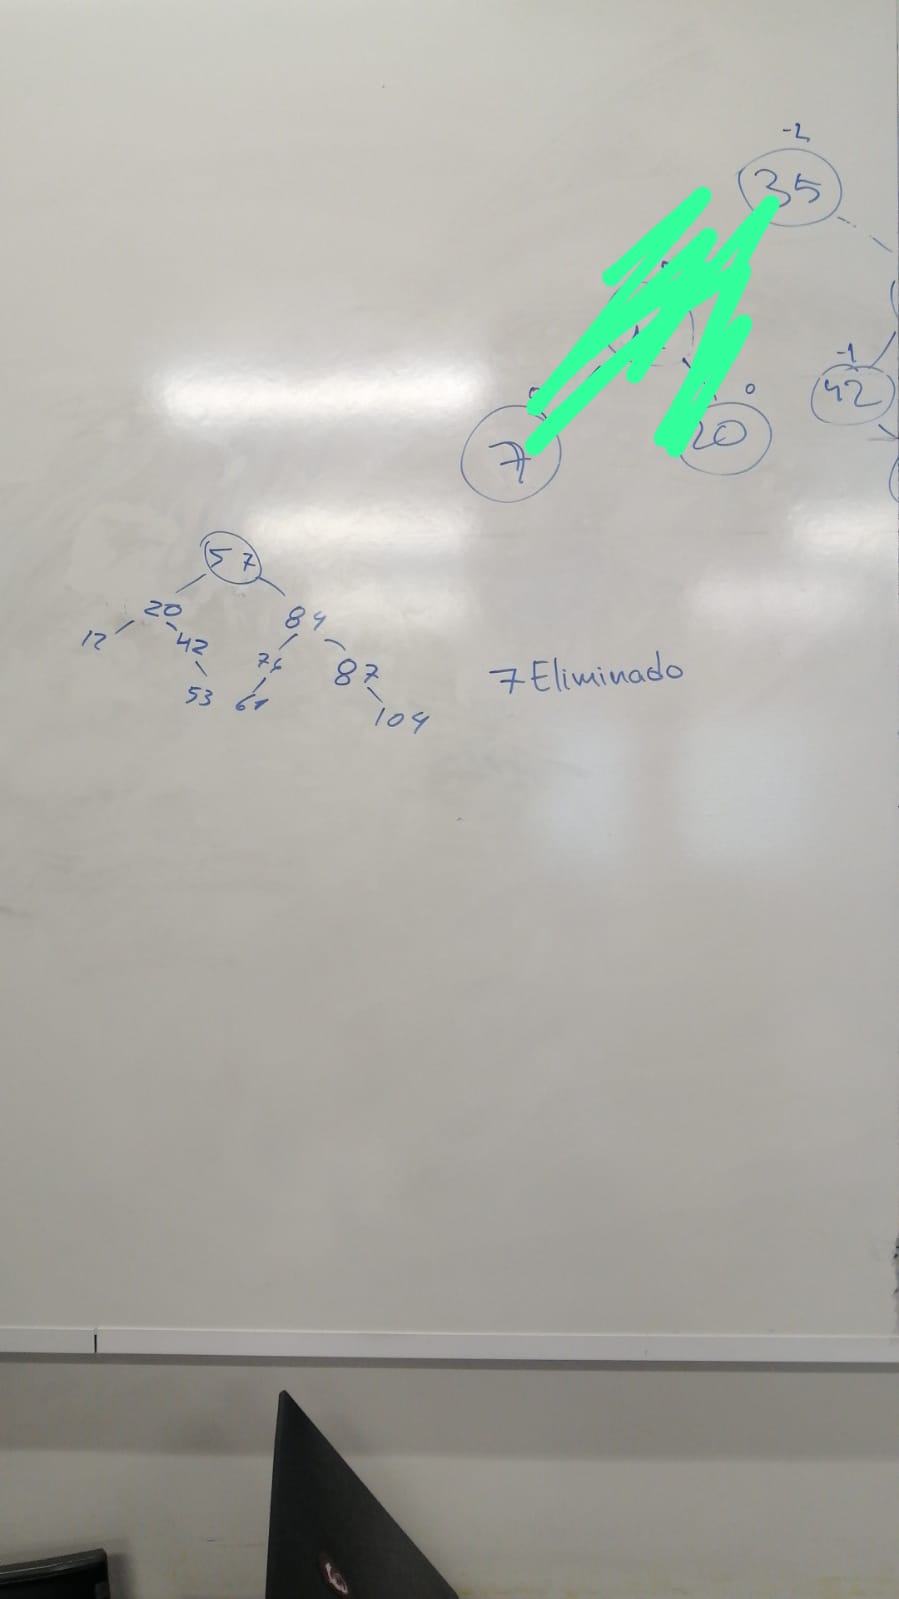 -2
35
0
-1
42
7
20
57
20
84
12
42
76
87
53
61
104
7 Eliminado